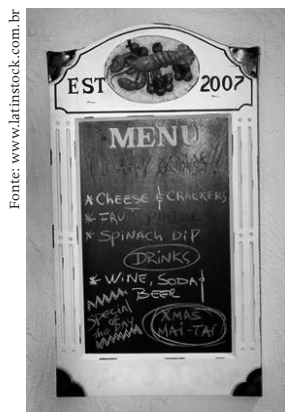 Fonte: www.latinstock.com.br
EST 2007
MENU
* CHEESE & CRACKERS
* SPINACH DIP
DRINKS
* WINE, SODA,
BEER
SPECIAL
OF
the DAY
XMAS
MAI-TAI